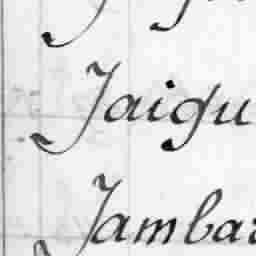 Jaigu
Jambar